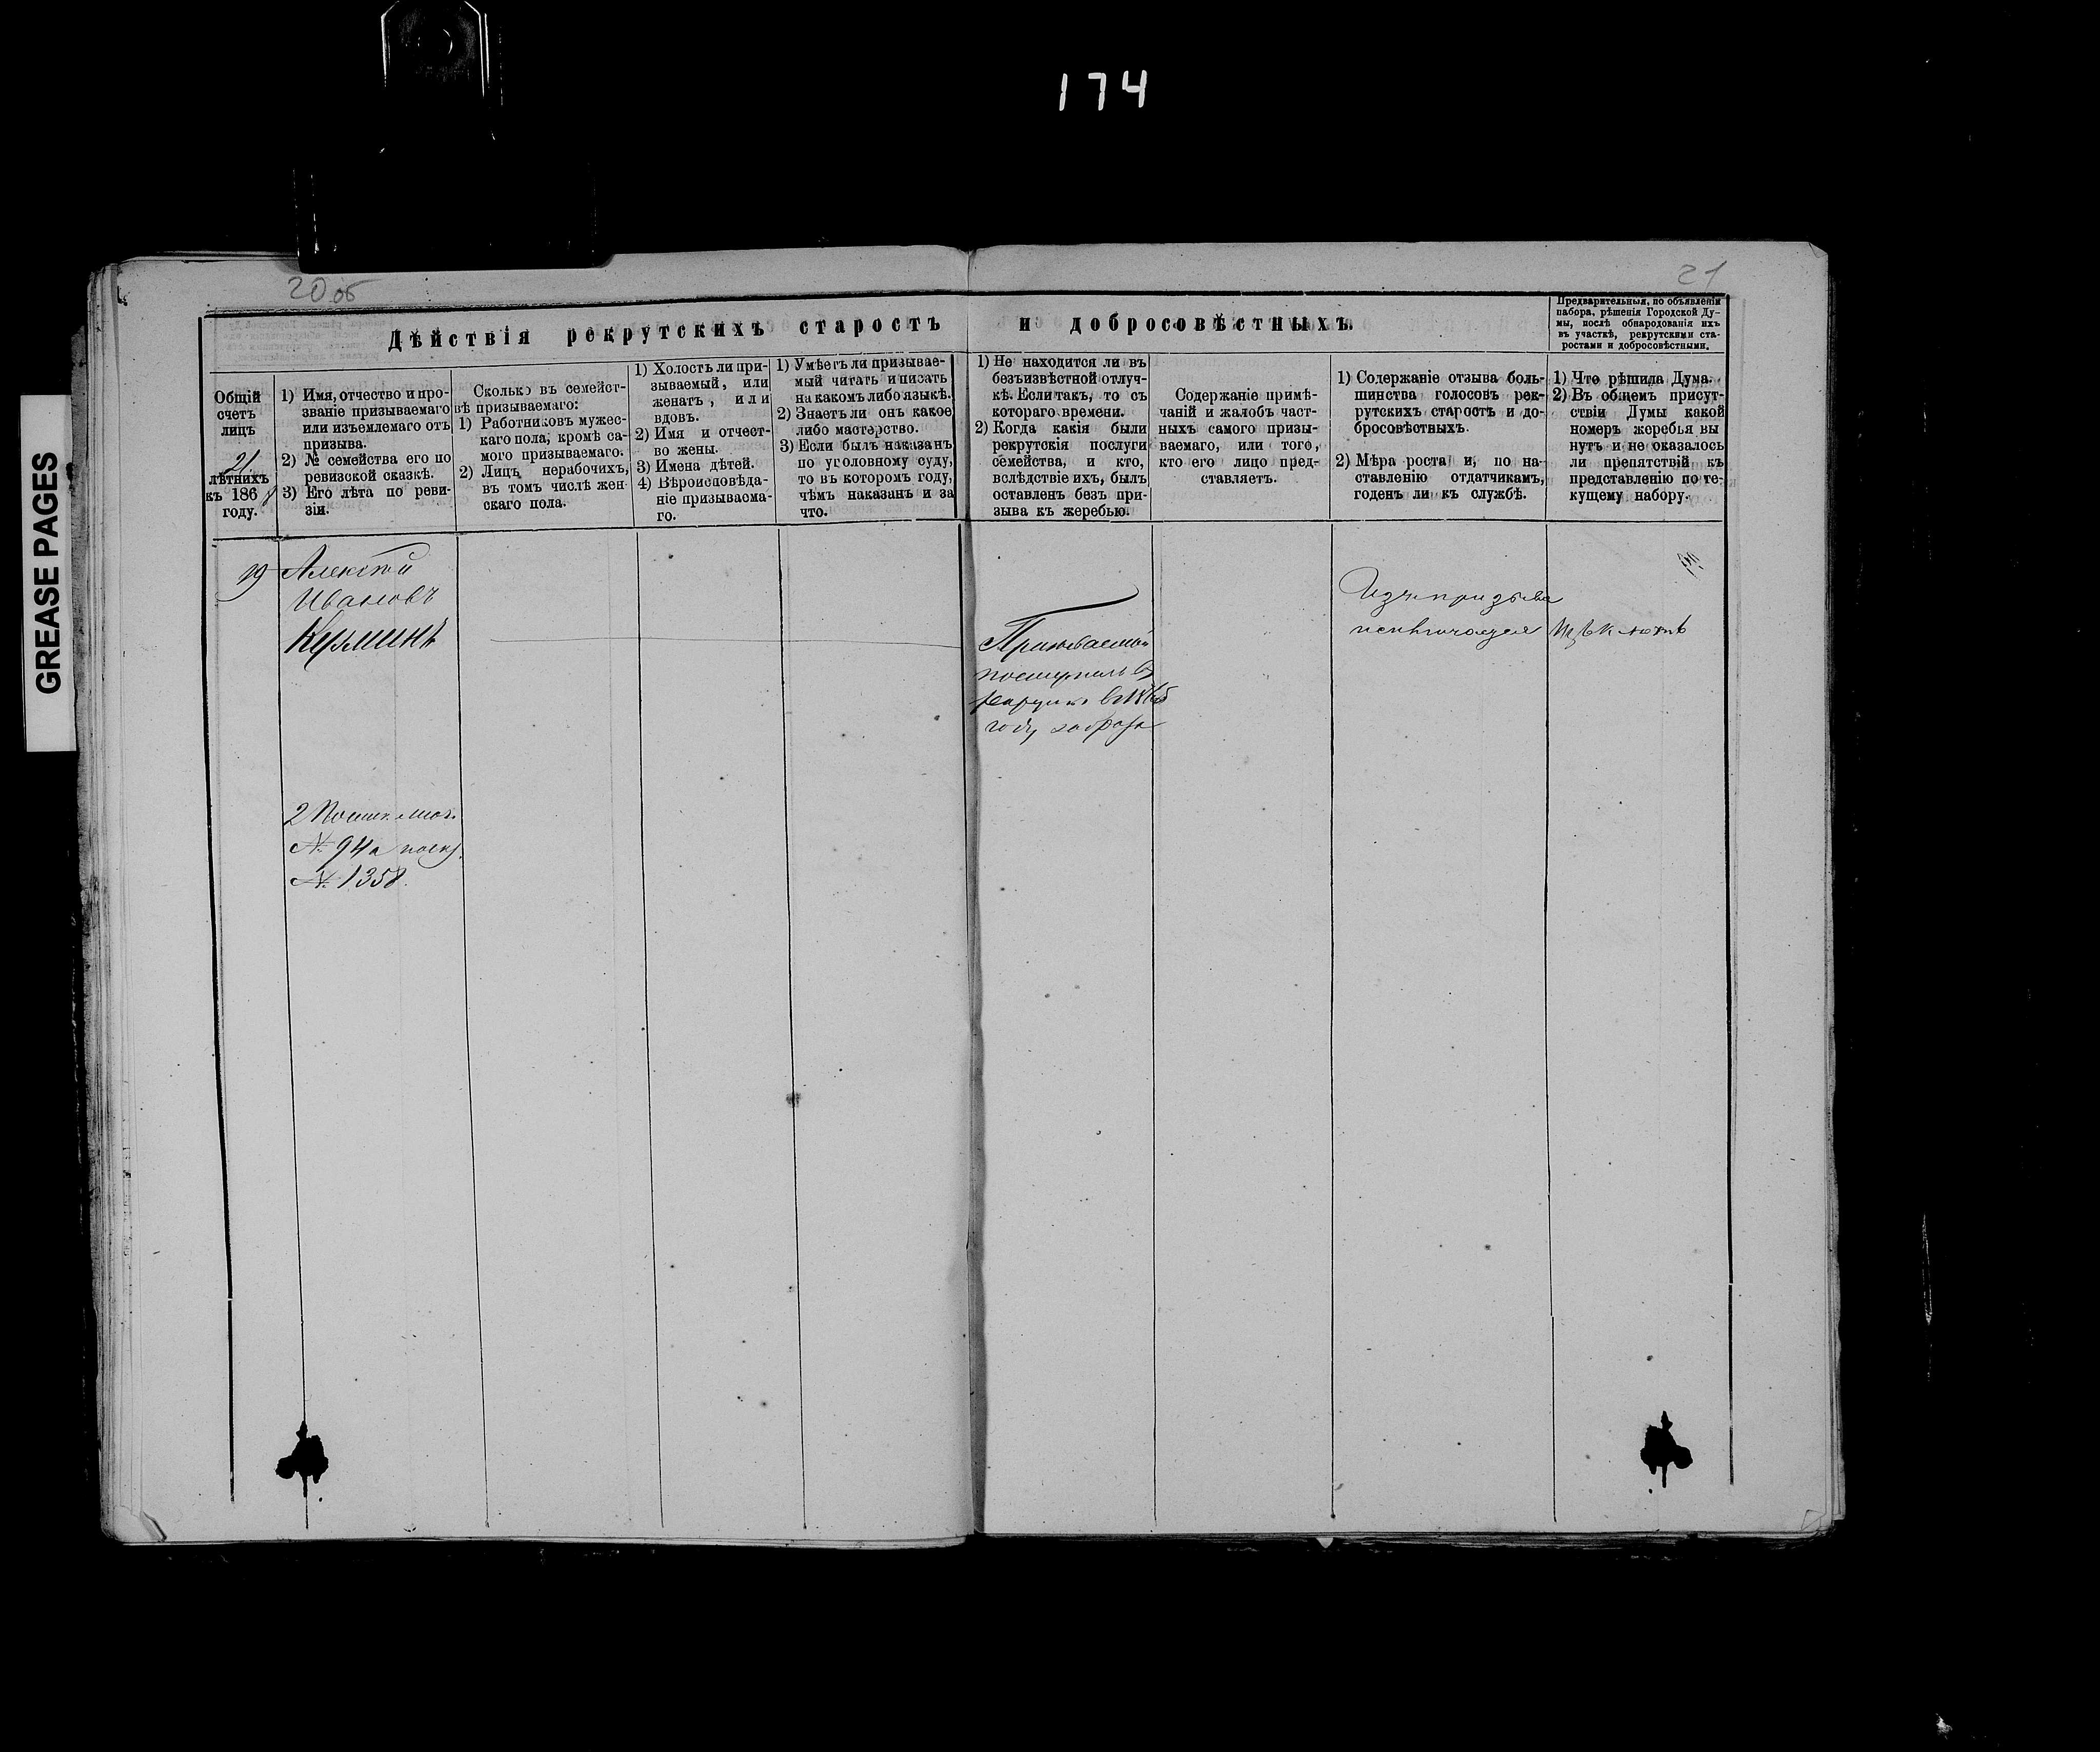 174
GREASE PAGES
20 об
21
Дѣйствія рекрутскихъ старостъ и добросовѣстныхъ.
Предварительныя, по объявленіи
набора, рѣшенія Городской Ду-
мы, послѣ обнародованія ихъ
въ участкѣ, рекрутскими ста-
ростами и добросовѣстными.
Общій
счетъ
лицъ
21.
лѣтнихъ
къ 186
году.
1) Имя, отчество и про-
званіе призываемаго
или изъемлемаго отъ
призыва.
2) № семейства его по
ревизской сказкѣ.
3) Его лѣта по реви-
зіи.
Сколько въ семейст-
вѣ призываемаго:
1) Работниковъ мужес-
каго пола, кромѣ са-
мого призываемаго.
2) Лицъ нерабочихъ,
въ томъ числѣ жен
скаго пола.
1) Холостъ ли при-
зываемый, или
женатъ, или
вдовъ.
2) Имя и отчест-
во жены.
3) Имена дѣтей.
4) Вѣроисповѣда-
ніе призываема-
го.
1) Умѣетъ ли призывае-
мый читать и писать
на какомъ либо языкѣ.
2) Знаетъ ли онъ какое
либо мастерство.
3) Если былъ наказанъ
по уголовному суду,
то въ которомъ году,
чѣмъ наказанъ и за
что.
1) Не находится ли въ
безъизвѣстной отлуч-
кѣ. Если такъ, то съ
котораго времени.
2) Когда какія были
рекрутскія послуги
семейства, и кто,
вслѣдствіе ихъ, былъ
оставленъ безъ при-
зыва къ жеребью.
Содержаніе примѣ-
чаній и жалобъ част-
ныхъ самого призы-
ваемаго, или того,
кто его лицо пред-
ставляетъ.
1) Содержаніе отзыва боль-
шинства голосовъ рек-
рутскихъ старостъ и до-
бросовѣстныхъ.
2) Мѣра роста и, по на-
ставленію отдатчикамъ,
годенъ ли къ службѣ.
1) Что рѣшила Дума.
2) Въ общемъ присут-
ствіи Думы какой
номеръ жеребья вы
нутъ и не оказалось
ли препятствій къ
представленію по те-
кущему набору.
19
Алексѣй
Ивановъ
Кузминъ
2
№ 94 а
№ 1358.
Призываемый
поступилъ въ
рекруты въ 1865
году
Изъ призыва
исключается
Исключить